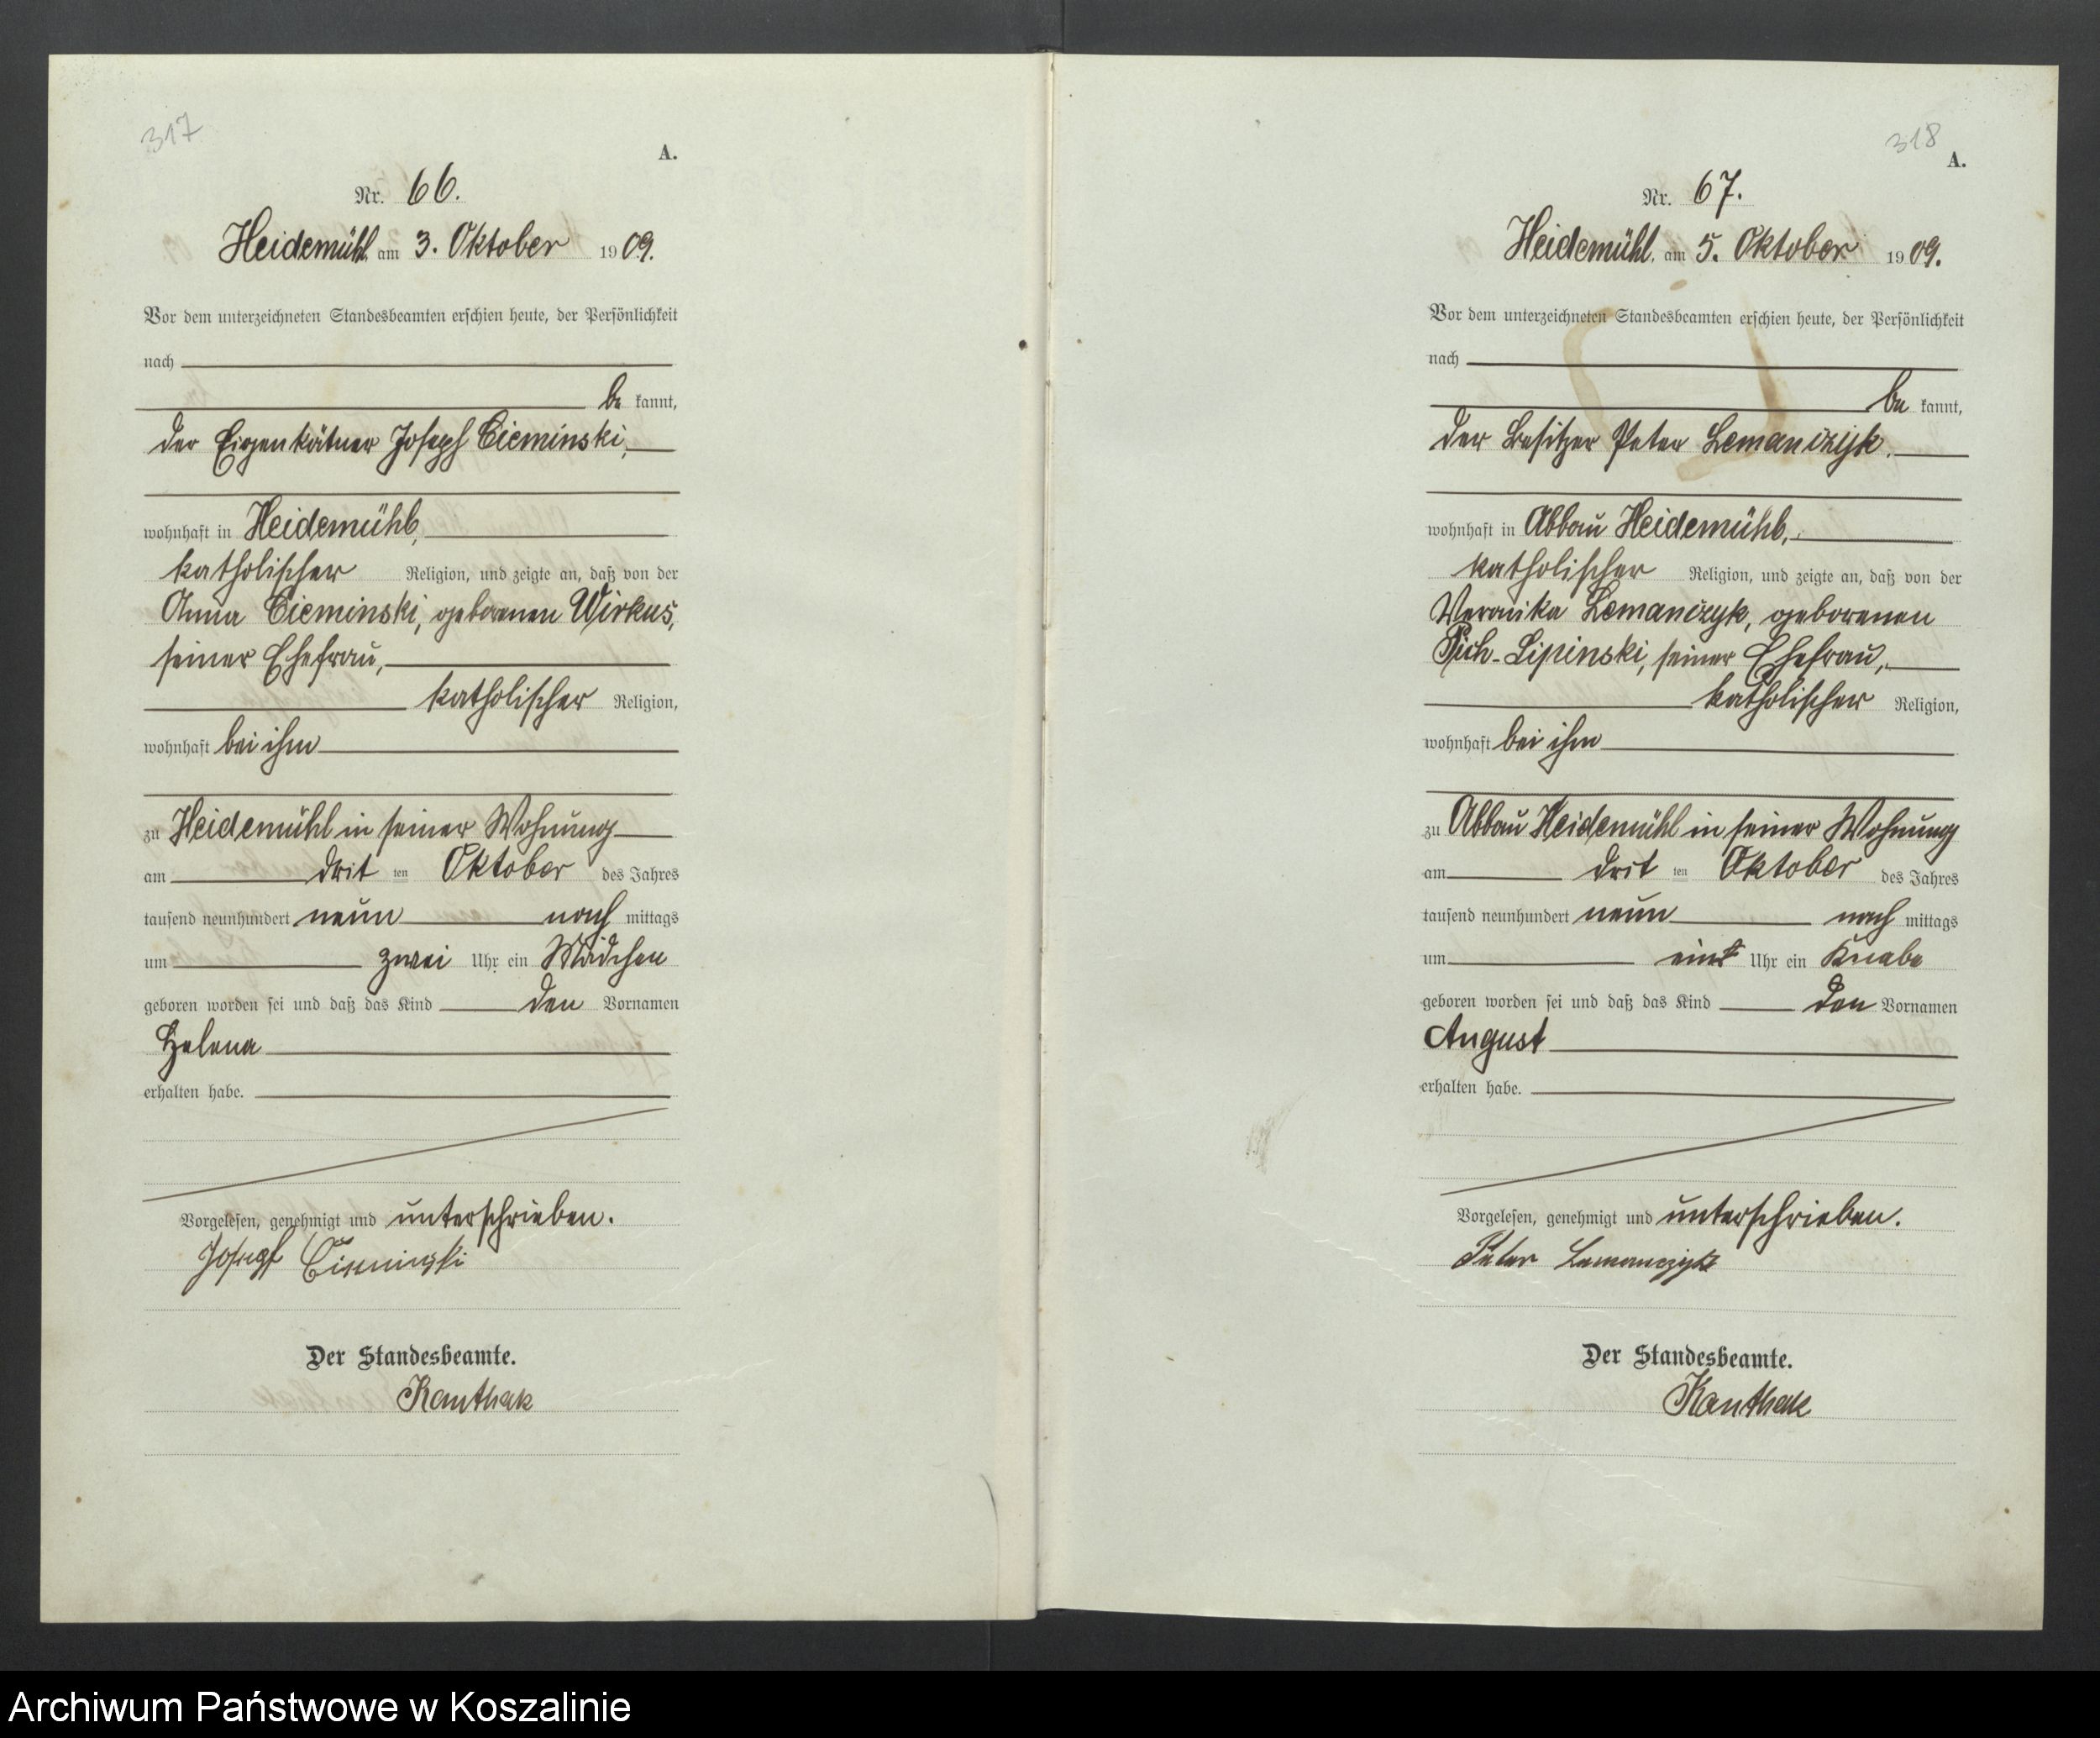 317
A.
Nr. 66.
Heidemühl, am 3. Oktober 1909.
Vor dem unterzeichneten Standesbeamten erschien heute, der Persönlichkeit
nach
be kannt,
der Eigenkätner Joseph Cieminski,
wohnhaft in Heidemühl,
katholischer Religion, und zeigte an, daß von der
Anna Cieminski, geborenen Wirkus,
seiner Ehefrau,
katholischer Religion,
wohnhaft bei ihm
zu Heidemühl in seiner Wohnung
am drit ten Oktober des Jahres
tausend neunhundert neun nach mittags
um zwei Uhr ein Mädchen
geboren worden sei und daß das Kind den Vornamen
Helena
erhalten habe.
Vorgelesen, genehmigt und unterschrieben.
Josepf Cieminski
Der Standesbeamte.
Kanthak
318
A.
Nr. 67.
Heidemühl, am 5. Oktober 1909.
Vor dem unterzeichneten Standesbeamten erschien heute, der Persönlichkeit
nach
be kannt,
der Besitzer Peter Lemanczyk,
wohnhaft in Abbau Heidemühl,
katholischer Religion, und zeigte an, daß von der
Veronika Lemanczyk, geborenen
Pich-Lipinski, seiner Ehefrau,
katholischer Religion,
wohnhaft bei ihm
zu Abbau Heidemühl in seiner Wohnung
am drit ten Oktober des Jahres
tausend neunhundert neun nach mittags
um ein Uhr ein Knabe
geboren worden sei und daß das Kind den Vornamen
August
erhalten habe.
Vorgelesen, genehmigt und unterschrieben.
Peter Lemanczyk
Der Standesbeamte.
Kanthak
Archiwum Państwowe w Koszalinie